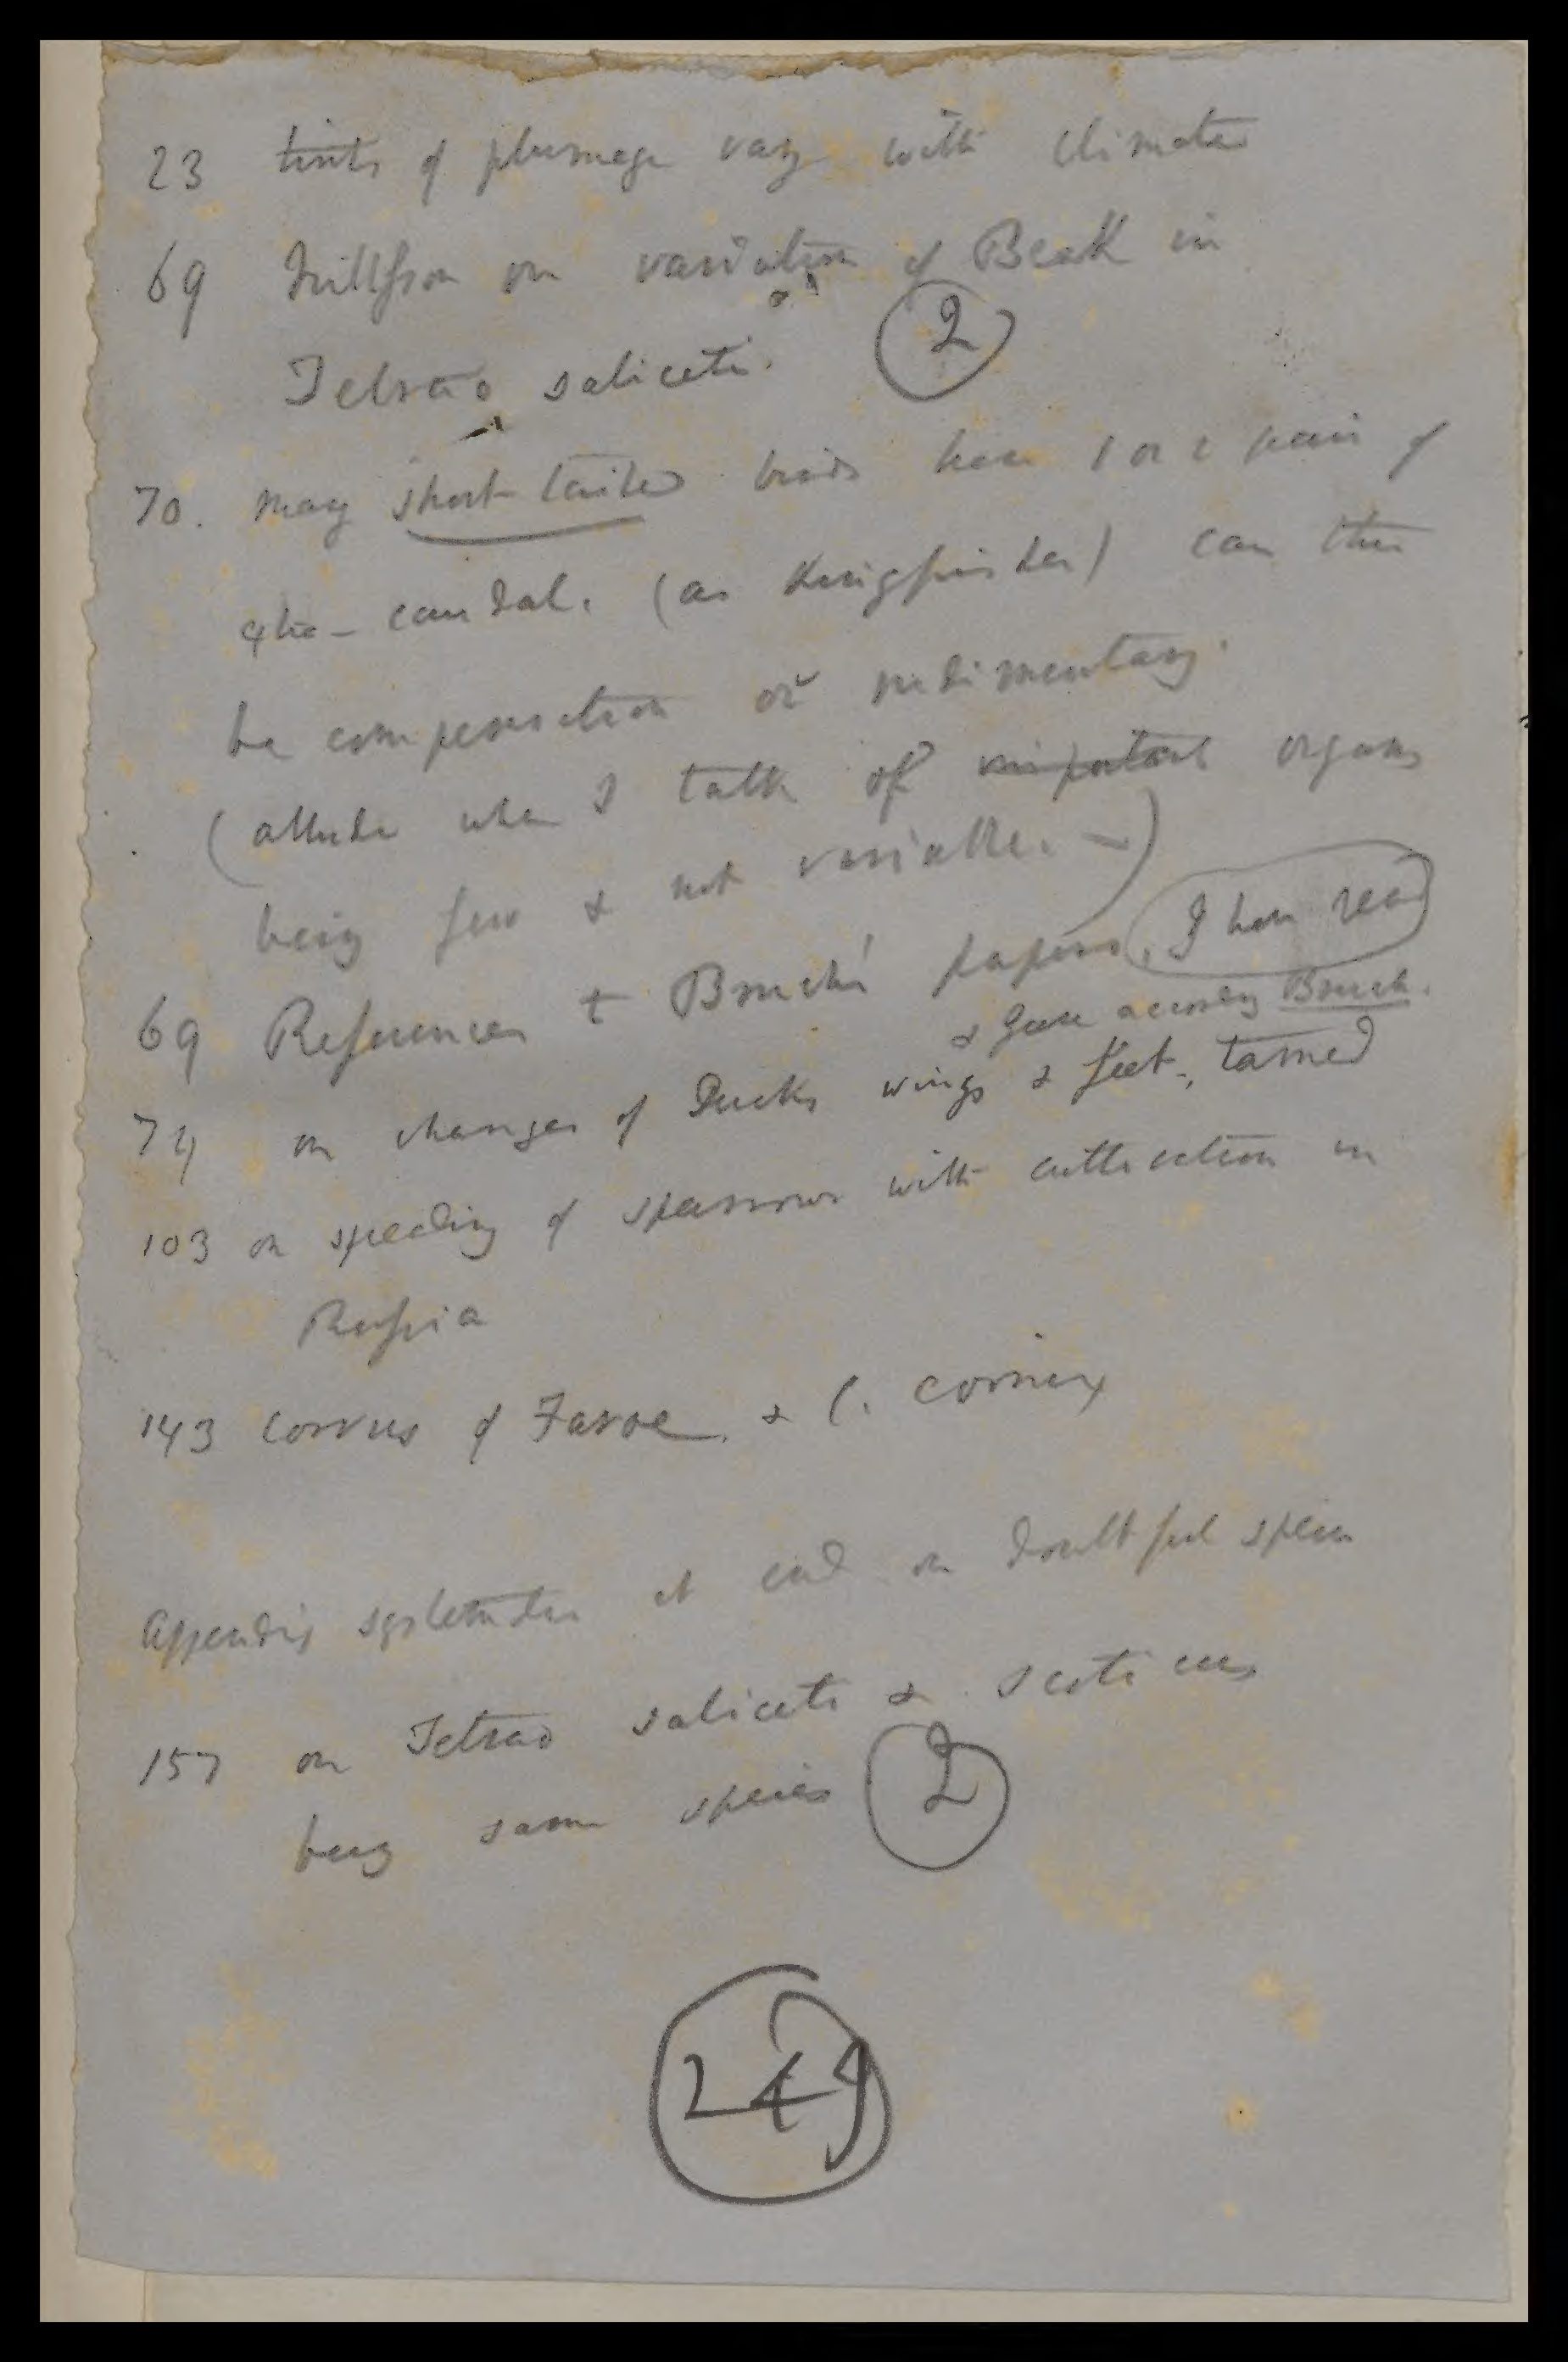 23 tints of plumage vary with climate
69 Nillsson on variation of Beak in
Tetrao saliceti. 2
70. many short tailed birds have 1 or 2 pair of
caudal. (as Kingfisher) can this
be compensation or rudimentary.
(allude when I talk of important organs
being few & not variable. —)
69 References to Bruch's papers, I have read
& Geese according Bruch.
74 on changes of Ducks wings & feet, tamed
103 on spreading of sparrows with cultivation in
Russia
143 Corvus of Faroe. & C. cornix
Appendix at end on doubtful species
157 on Tetrao saliceti & scoticus
being same species 2
249